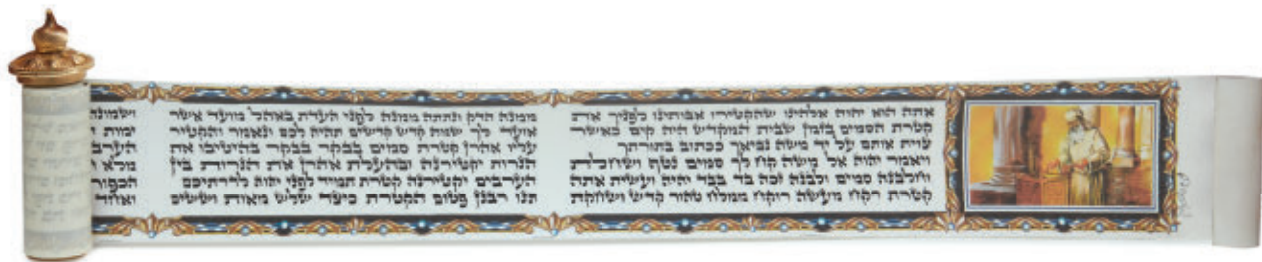 אתה הוא יהוה אלהינו שהקטירו אבותינו לפניך את
קטרת הסמים בזמן שבית המקדש היה קים כאשר
צוית אותם על יד משה נביאך ככתוב בתורתך
ויאמר יהוה אל משה קח לך סמים נטף ושחלת
וחלבנה סמים ולבנה זכה בד בבד יהיה ועשית אתה
קטרת רקח מעשה רוקח ממלח טהור קדש ושחקת
ממנה הדק ונתתה ממנה לפני העדת באהל מועד אשר
אועד לך שמה קדש קדשים תהיה לכם ונאמר והקטיר
עליו אהרן קטרת סמים בבקר בבקר בהיטיבו את
הנרות יקטירנה ובהעלת אהרן את הנרות בין
הערבים יקטירנה קטרת תמיד לפני יהוה לדרתיכם
תנו רבנן פטום הקטרת כיצד שלש מאות וששים
ושמונה
ימות
הערב
מלא
הכפור
ואחד